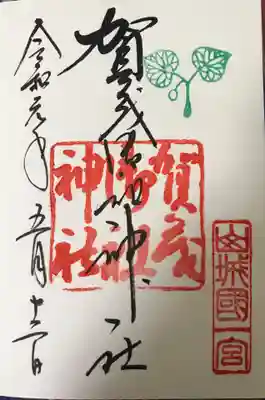 山城國一宮
賀茂御祖神社
賀茂御祖神社
令和元年五月十二日